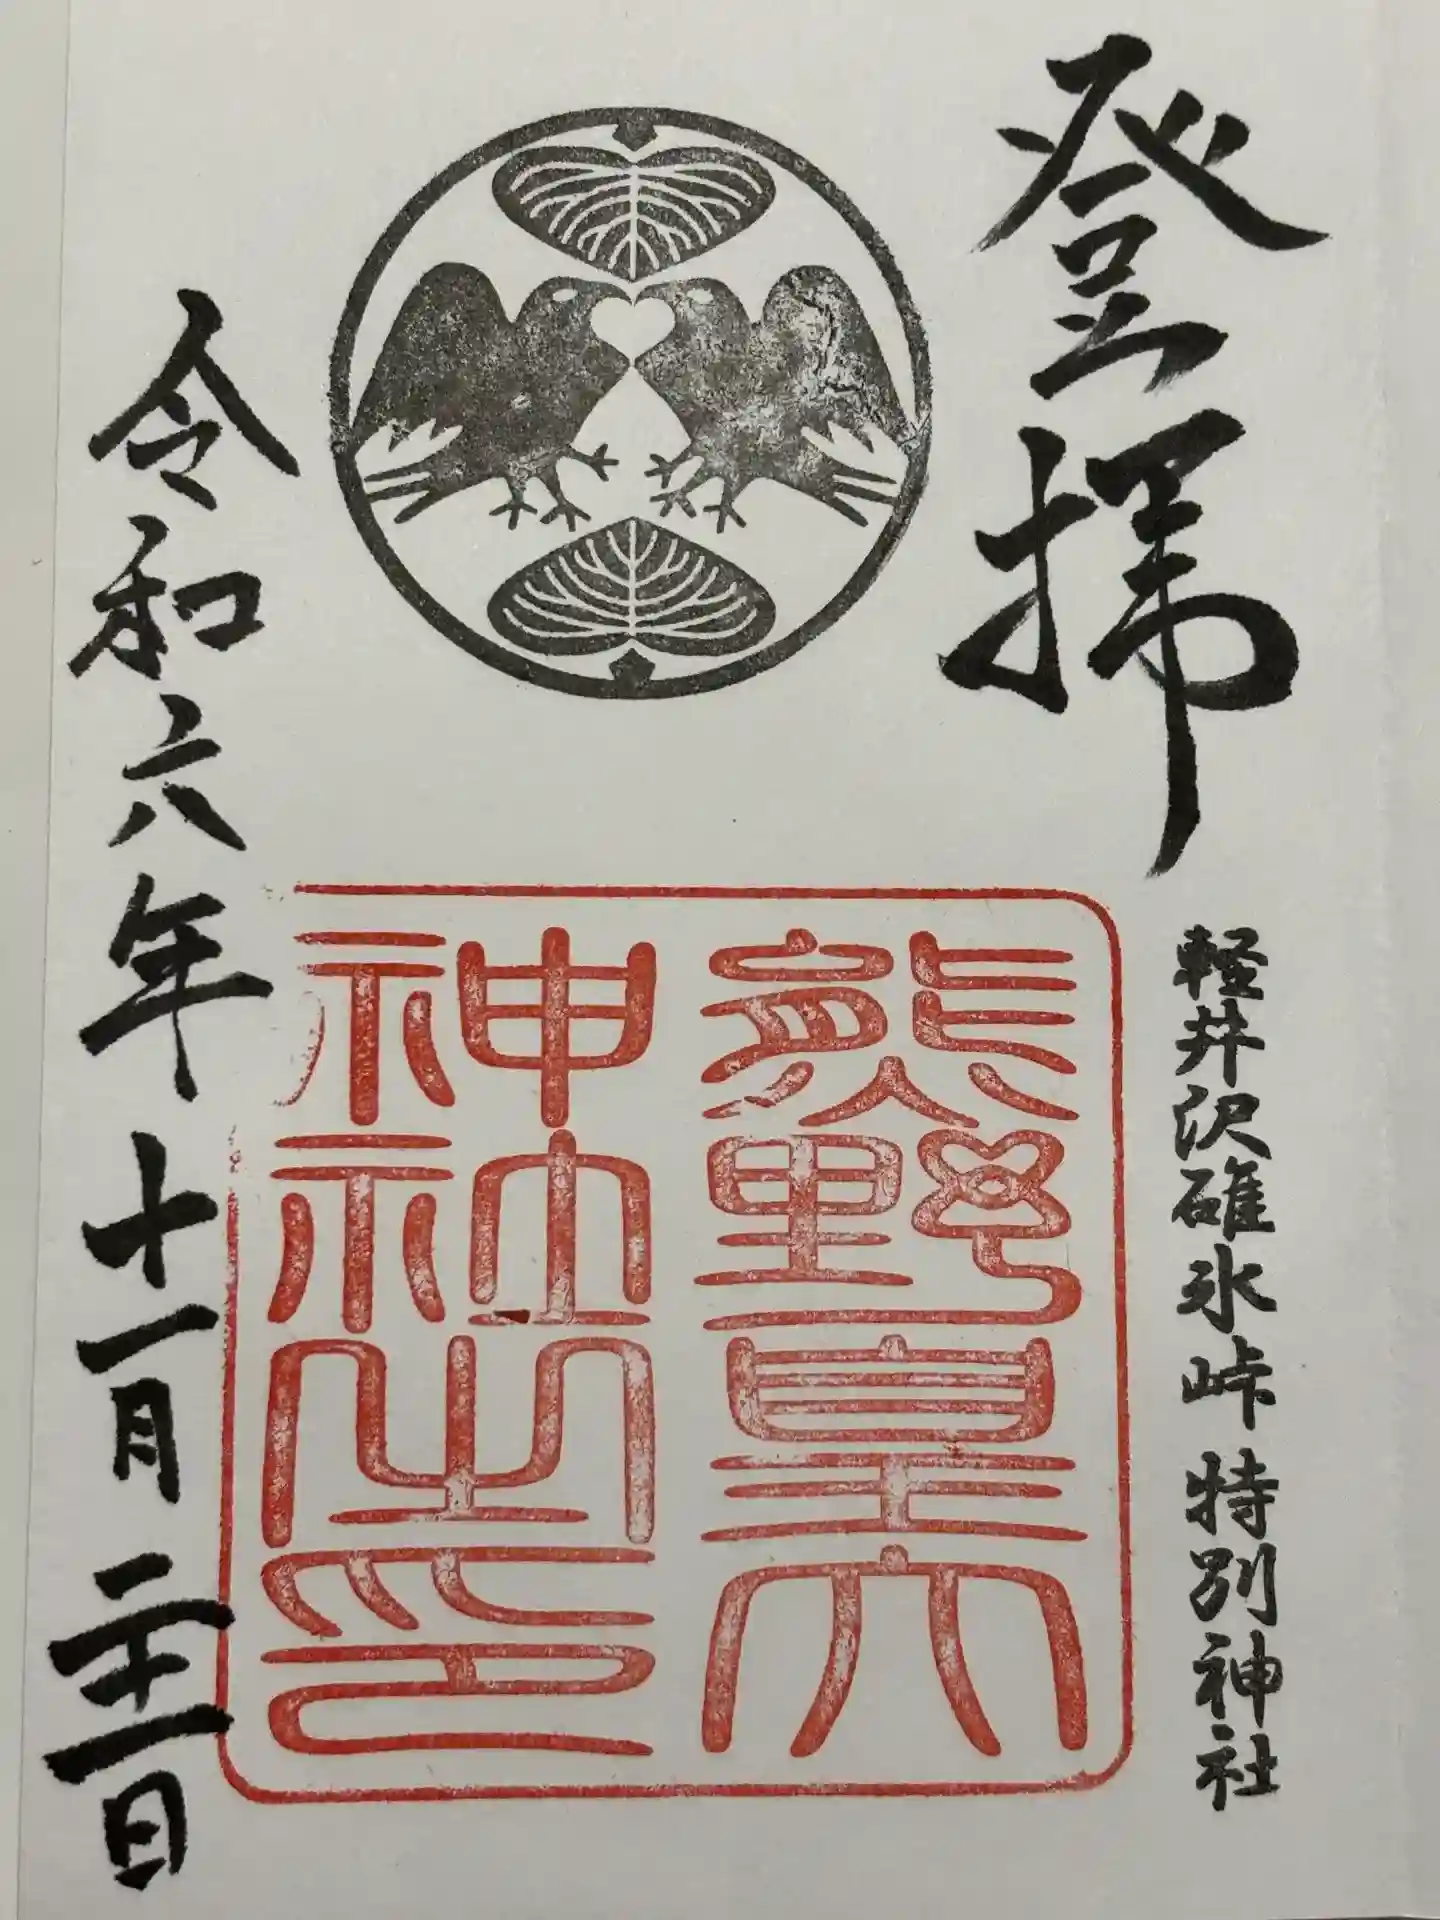 登拝
軽井沢碓氷峠特別神社
熊野皇大
神社之印
令和六年十一月二十一日